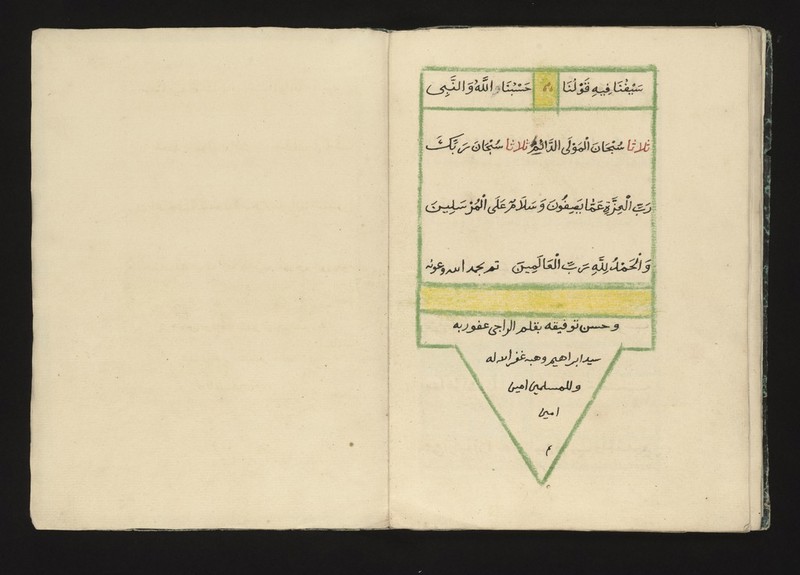 سَيْفُنَا فِيهِ قَوْلُنَا م حَسْبُنَا اللَّهُ وَالنَّبِي
ثلاثا سُبْحَانَ الْمَوْلَى الدَّائِمْ ثلاثا سُبْحَانَ رَبِّكَ
رَبِّ الْعِزَّةِ عَمَّا يَصِفُونَ وَسَلَامٌ عَلَى الْمُرْسَلِينَ
وَالْحَمْدُ لِلَّهِ رَبِّ الْعَالَمِينَ تم بحمد الله وعونه
وحسن توفيقه بقلم الراجى عفو ربه
سيد ابراهيم وهبه غفر الله له
وللمسلمين امين
امين
م